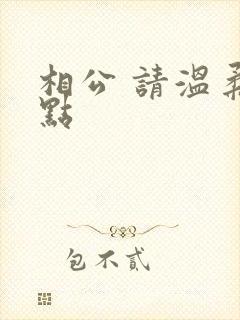 相公 請溫柔
點
包不貳